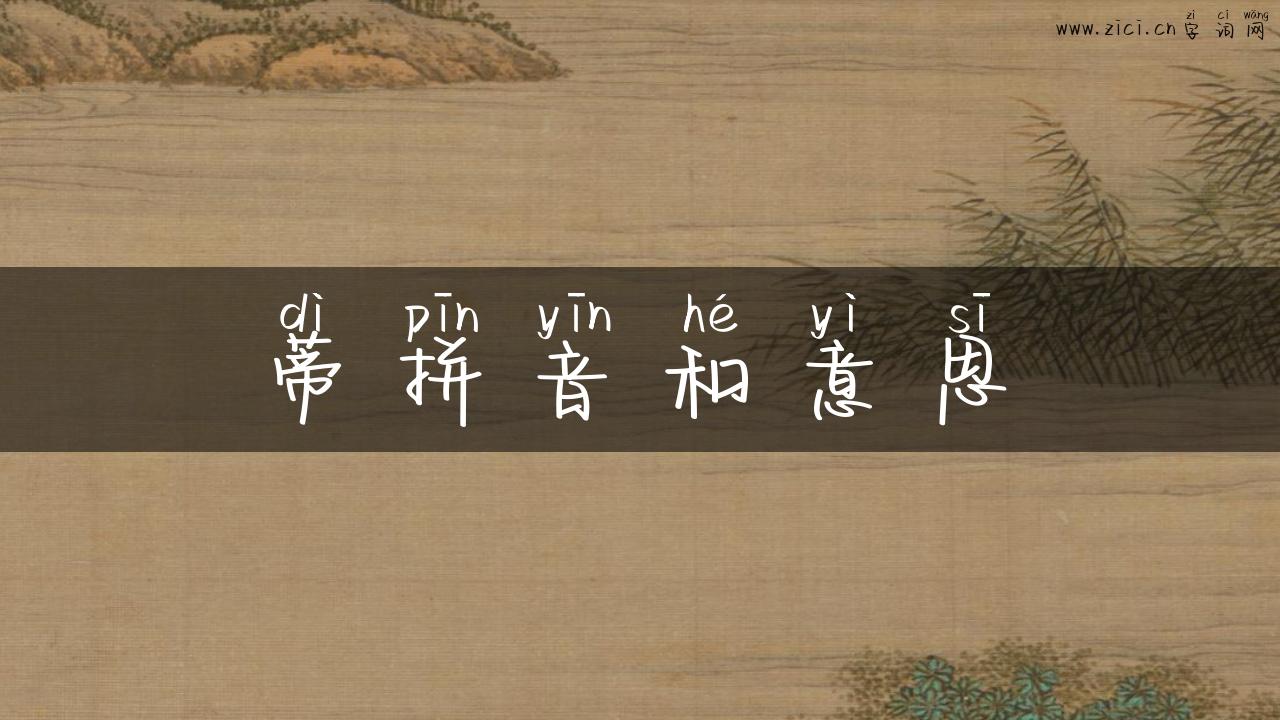 zì cí wǎng
www.zici.cn 字词网
dì pīn yīn hé yì sī
蒂拼音和意思